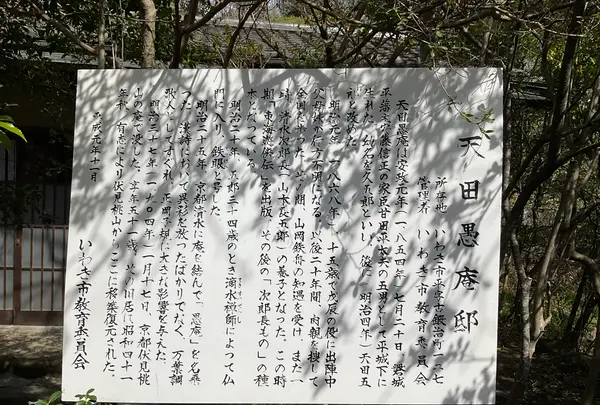 天田愚庵邸
所在地 いわき市平字古鍛冶町
管理者 いわき市教育委員会
天田愚庵は安政元年(一八五四年)七月二十日、磐城
平藩主安藤信正の家臣甘田平太夫の五男として平城下に
生れた。幼名を久五郎といい、後に(明治四年)天田五
郎と改めた。
明治元年(一八六八年)、十五歳で戊辰の役に出陣中
父母妹が行方不明になる。以後二十年間、肉親を捜して
全国を歩いた。その間、山岡鉄舟の知遇を受け、また一
時、清水次郎長(山本長五郎)の養子となった。この時
期「東海遊侠伝」を出版、その後の「次郎長もの」の種
本となっている。
明治二十年、五郎三十四歳のとき滴水禅師によって仏
門に入り、鉄眼と号した。
明治二十五年、京都清水に庵を結んで「愚庵」を名乗
った。漢詩において異彩を放ったばかりでなく、万葉調
歌人としてすぐれ、正岡子規に大きな影響を与えた。
明治三十七年(一九〇四年)一月十七日、京都伏見桃
山の庵で没した。享年五十一歳。その旧居は昭和四十一
年秋、有志により伏見桃山からここに移築復元された。
平成元年十二月
いわき市教育委員会